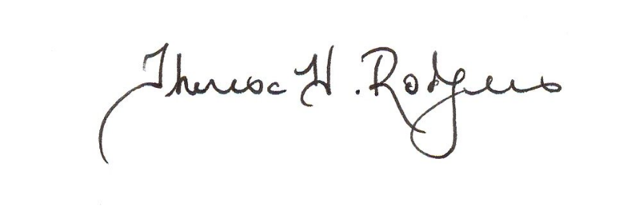 Theresa H. Rodgers